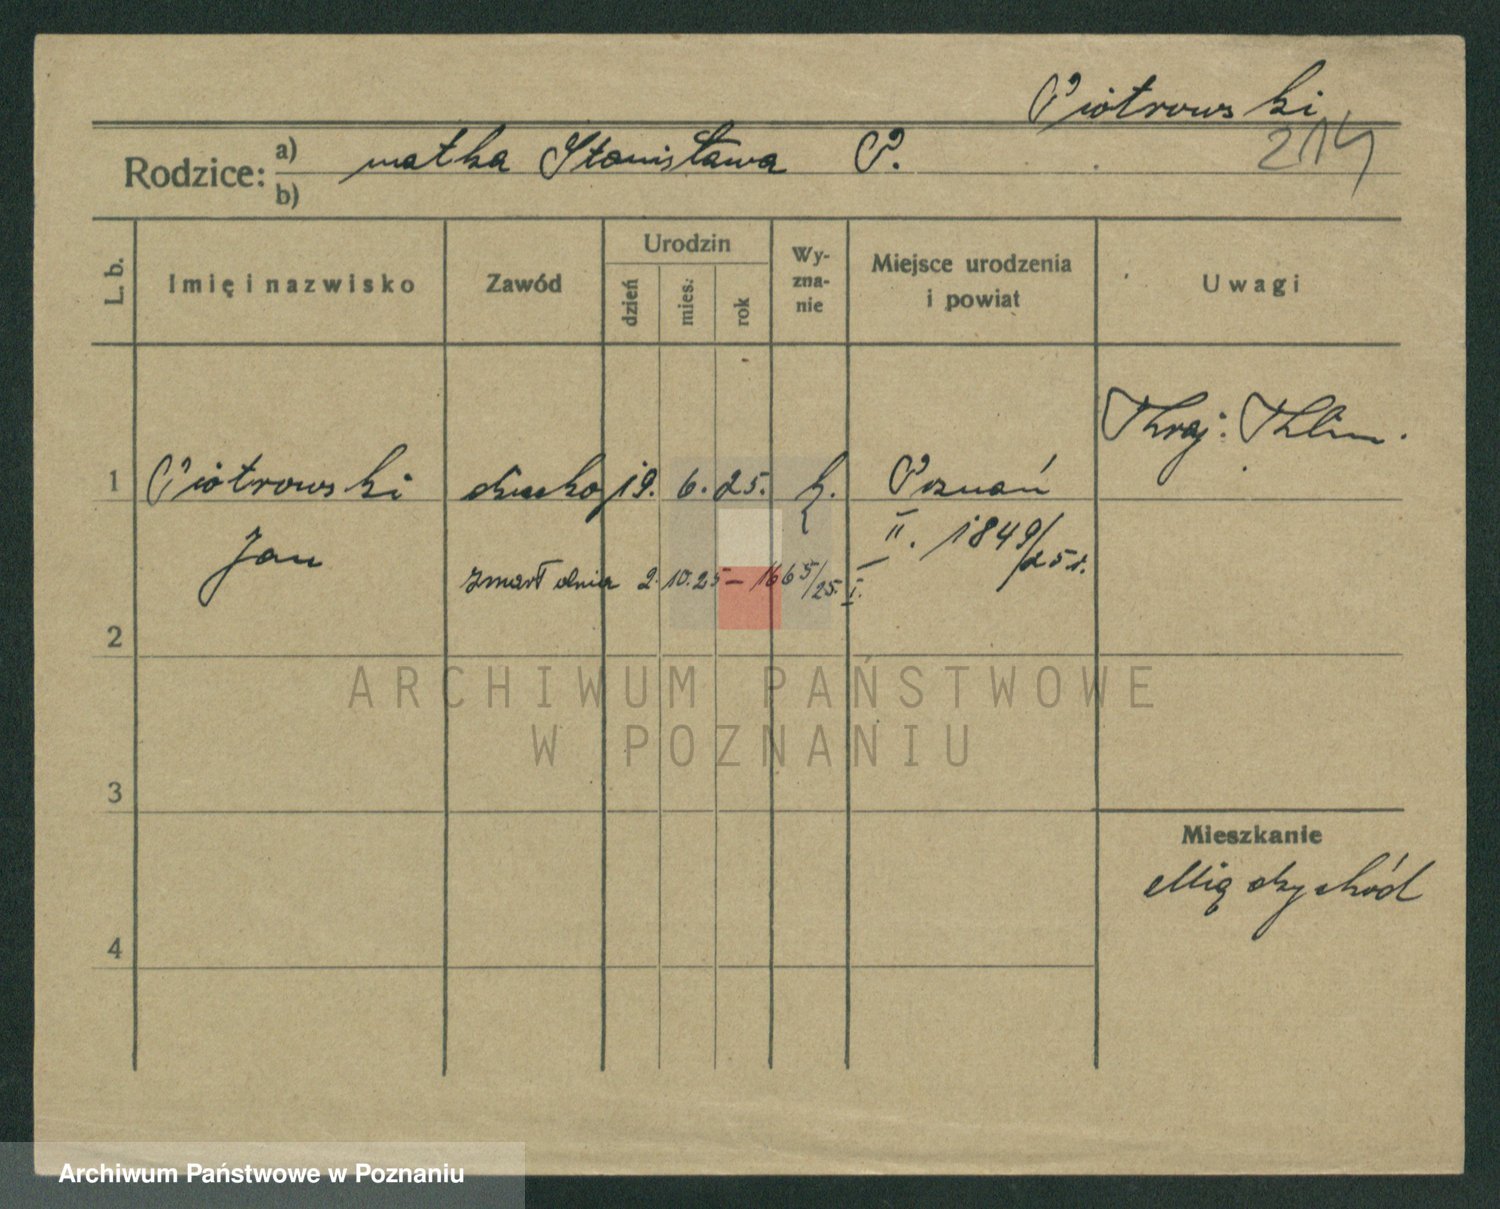 Piotrowski
214
Rodzice: a) matka Stanisława P.
b)
L. b.
Imię i nazwisko
Zawód
Urodzin
dzień
mies.
rok
Wy-
zna-
nie
Miejsce urodzenia
i powiat
Uwagi
1 Piotrowski dziecko 19. 6. 25. k. Poznań
Jan
II. 1849/25 r.
zmarł dnia 2. 10. 25 – 1665/25. I.
2
3
4
ARCHIWUM PAŃSTWOWE
W POZNANIU
Mieszkanie
Międzychód
Archiwum Państwowe w Poznaniu